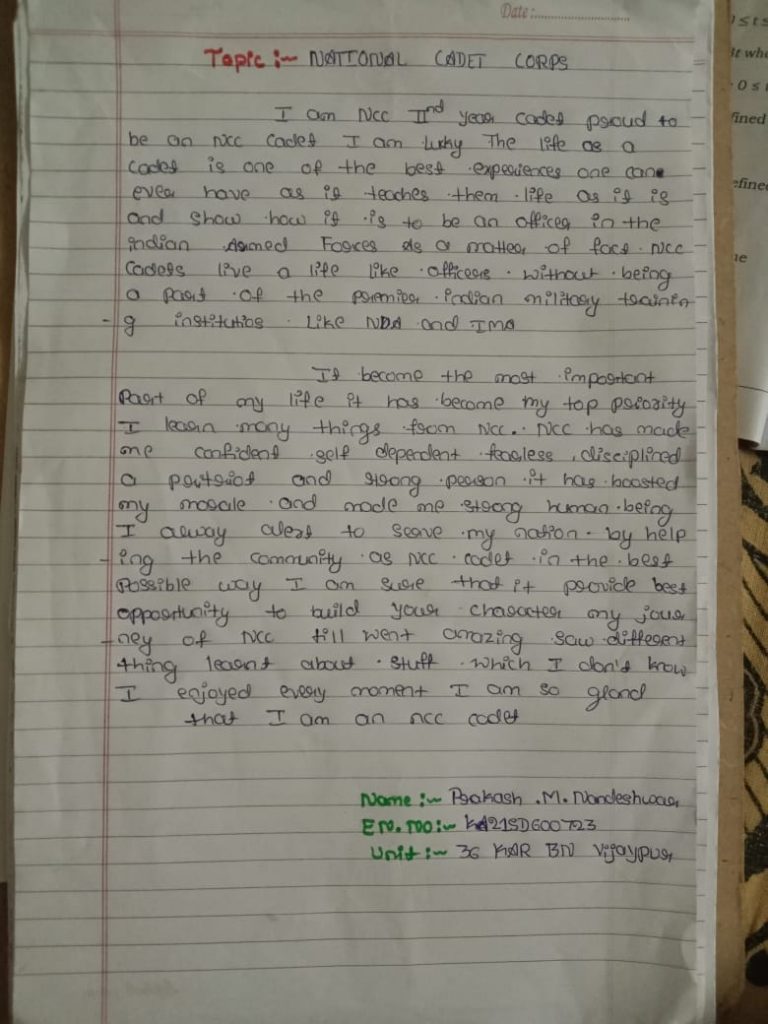 Date:
Topic :~ NATIONAL CADET CORPS
I am NCC IInd year cadet proud to
be an NCC Cadet I am lucky The life as a
Cadet is one of the best experiences one can
ever have as it teaches them life as it is
and show how it is to be an officer in the
indian Armed Forces As a matter of fact NCC
Cadets live a life like officers without being
a part of the premier indian military trainin
-g institutios like NDA and IMA
It become the most important
Part of my life it has become my top priority
I learn many things from NCC. NCC has made
me confident self dependent fearless, disciplined
a and strong person it has boosted
my morale and made me strong human being
I alway alert to serve my nation by help
-ing the community as NCC cadet in the best
Possible way I am sure that it provide best
opportunity to build your character my jour
-ney of NCC till went amazing saw different
thing learnt about stuff which I don't know
I enjoyed every moment I am so gland
that I am an ncc cadet
Name :~ Prakash .M. Nandeshwar
En. no :~ KA21SDG00723
Unit :~ 36 KAR BN Vijaypur
0 ≤
fined